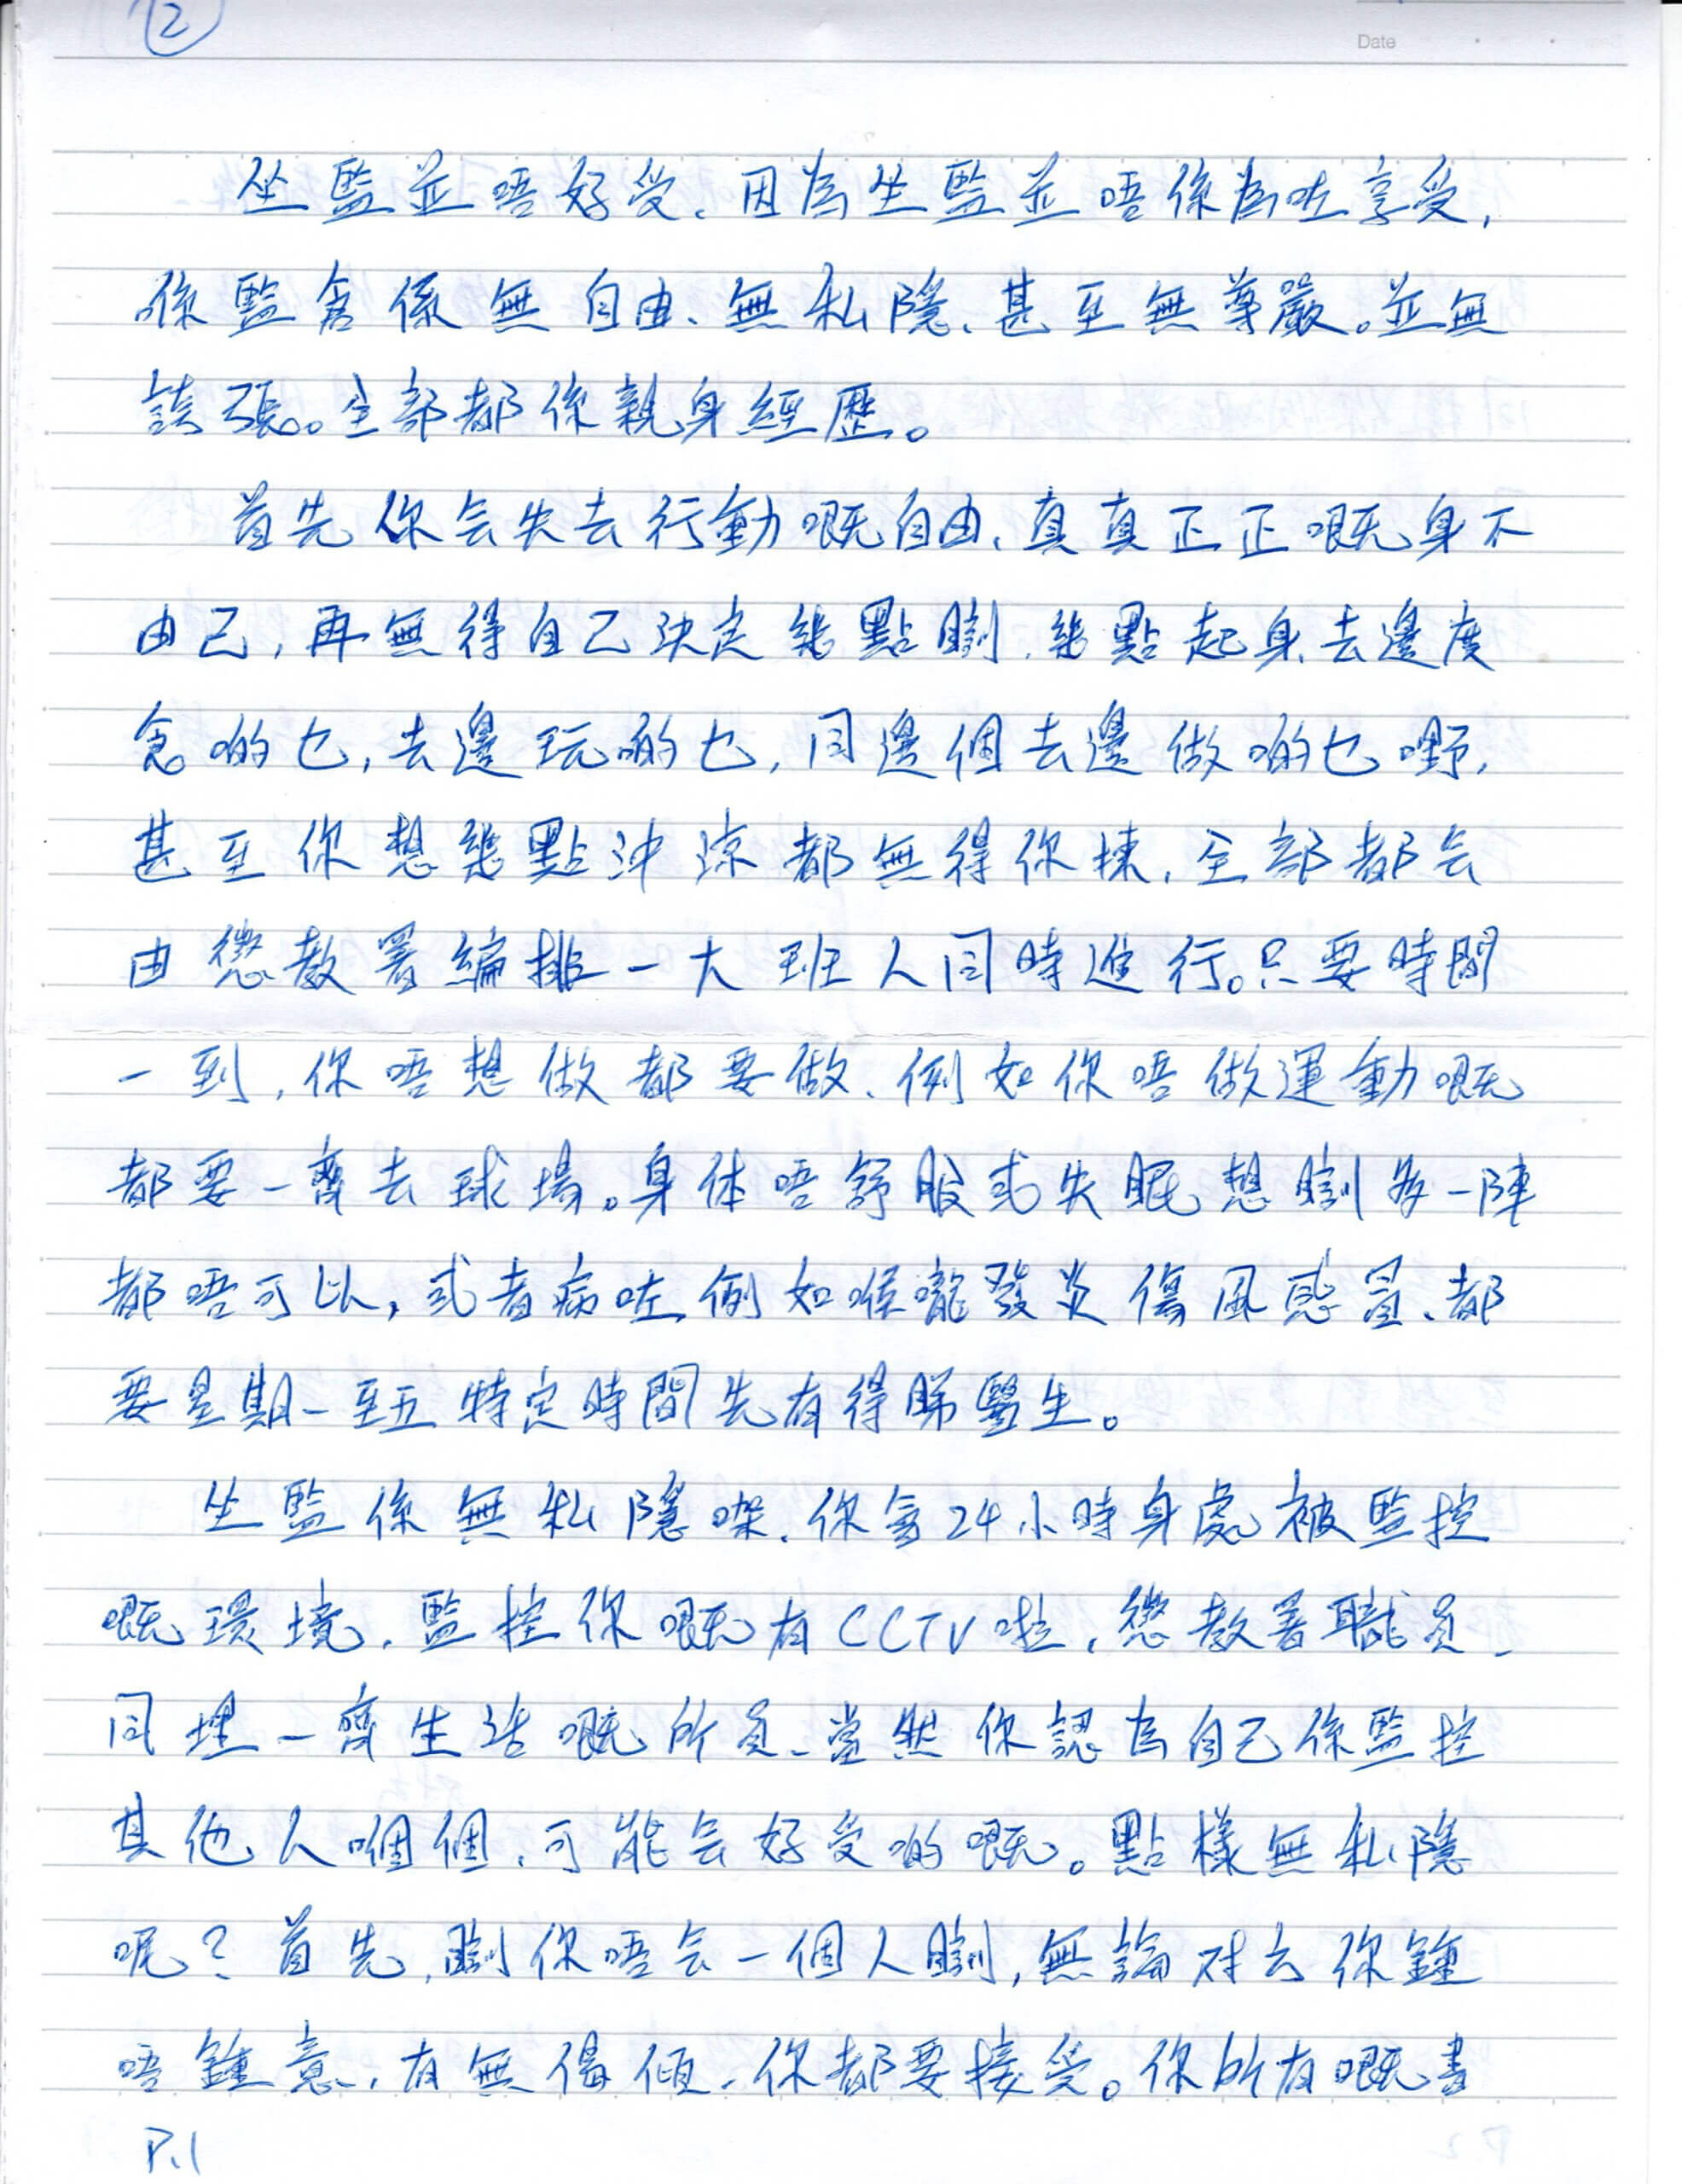 2
Date
坐監並唔好受、因為坐監並唔係為咗享受,
係監倉係無自由、無私隱、甚至無尊嚴。並無
誇張。全部都係親身經歷。
首先你会失去行動嘅自由、真真正正嘅身不
由己, 再無得自己決定幾點瞓、幾點起身、去邊度
食啲乜, 去邊玩啲乜, 同邊個去邊做啲乜嘢,
甚至你想幾點沖涼都無得你揀, 全部都会
由懲教署編排一大班人同時進行。只要時間
一到, 你唔想做都要做、例如你唔做運動嘅
都要一齊去球場。身体唔舒服或失眠想瞓多一陣
都唔可以, 或者病咗, 例如喉嚨發炎傷風感冒、都
要星期一至五特定時間先有得睇醫生。
坐監係無私隱㗎、你會24小時身處被監控
嘅環境, 監控你嘅有CCTV啦, 懲教署職員、
同埋一齊生活嘅所員、當然你認為自己係監控
其他人嗰個, 可能会好受啲嘅。點樣無私隱
呢? 首先, 瞓你唔会一個人瞓, 無論对方你鍾
唔鍾意, 有無偈傾、你都要接受。你所有嘅書
P.1